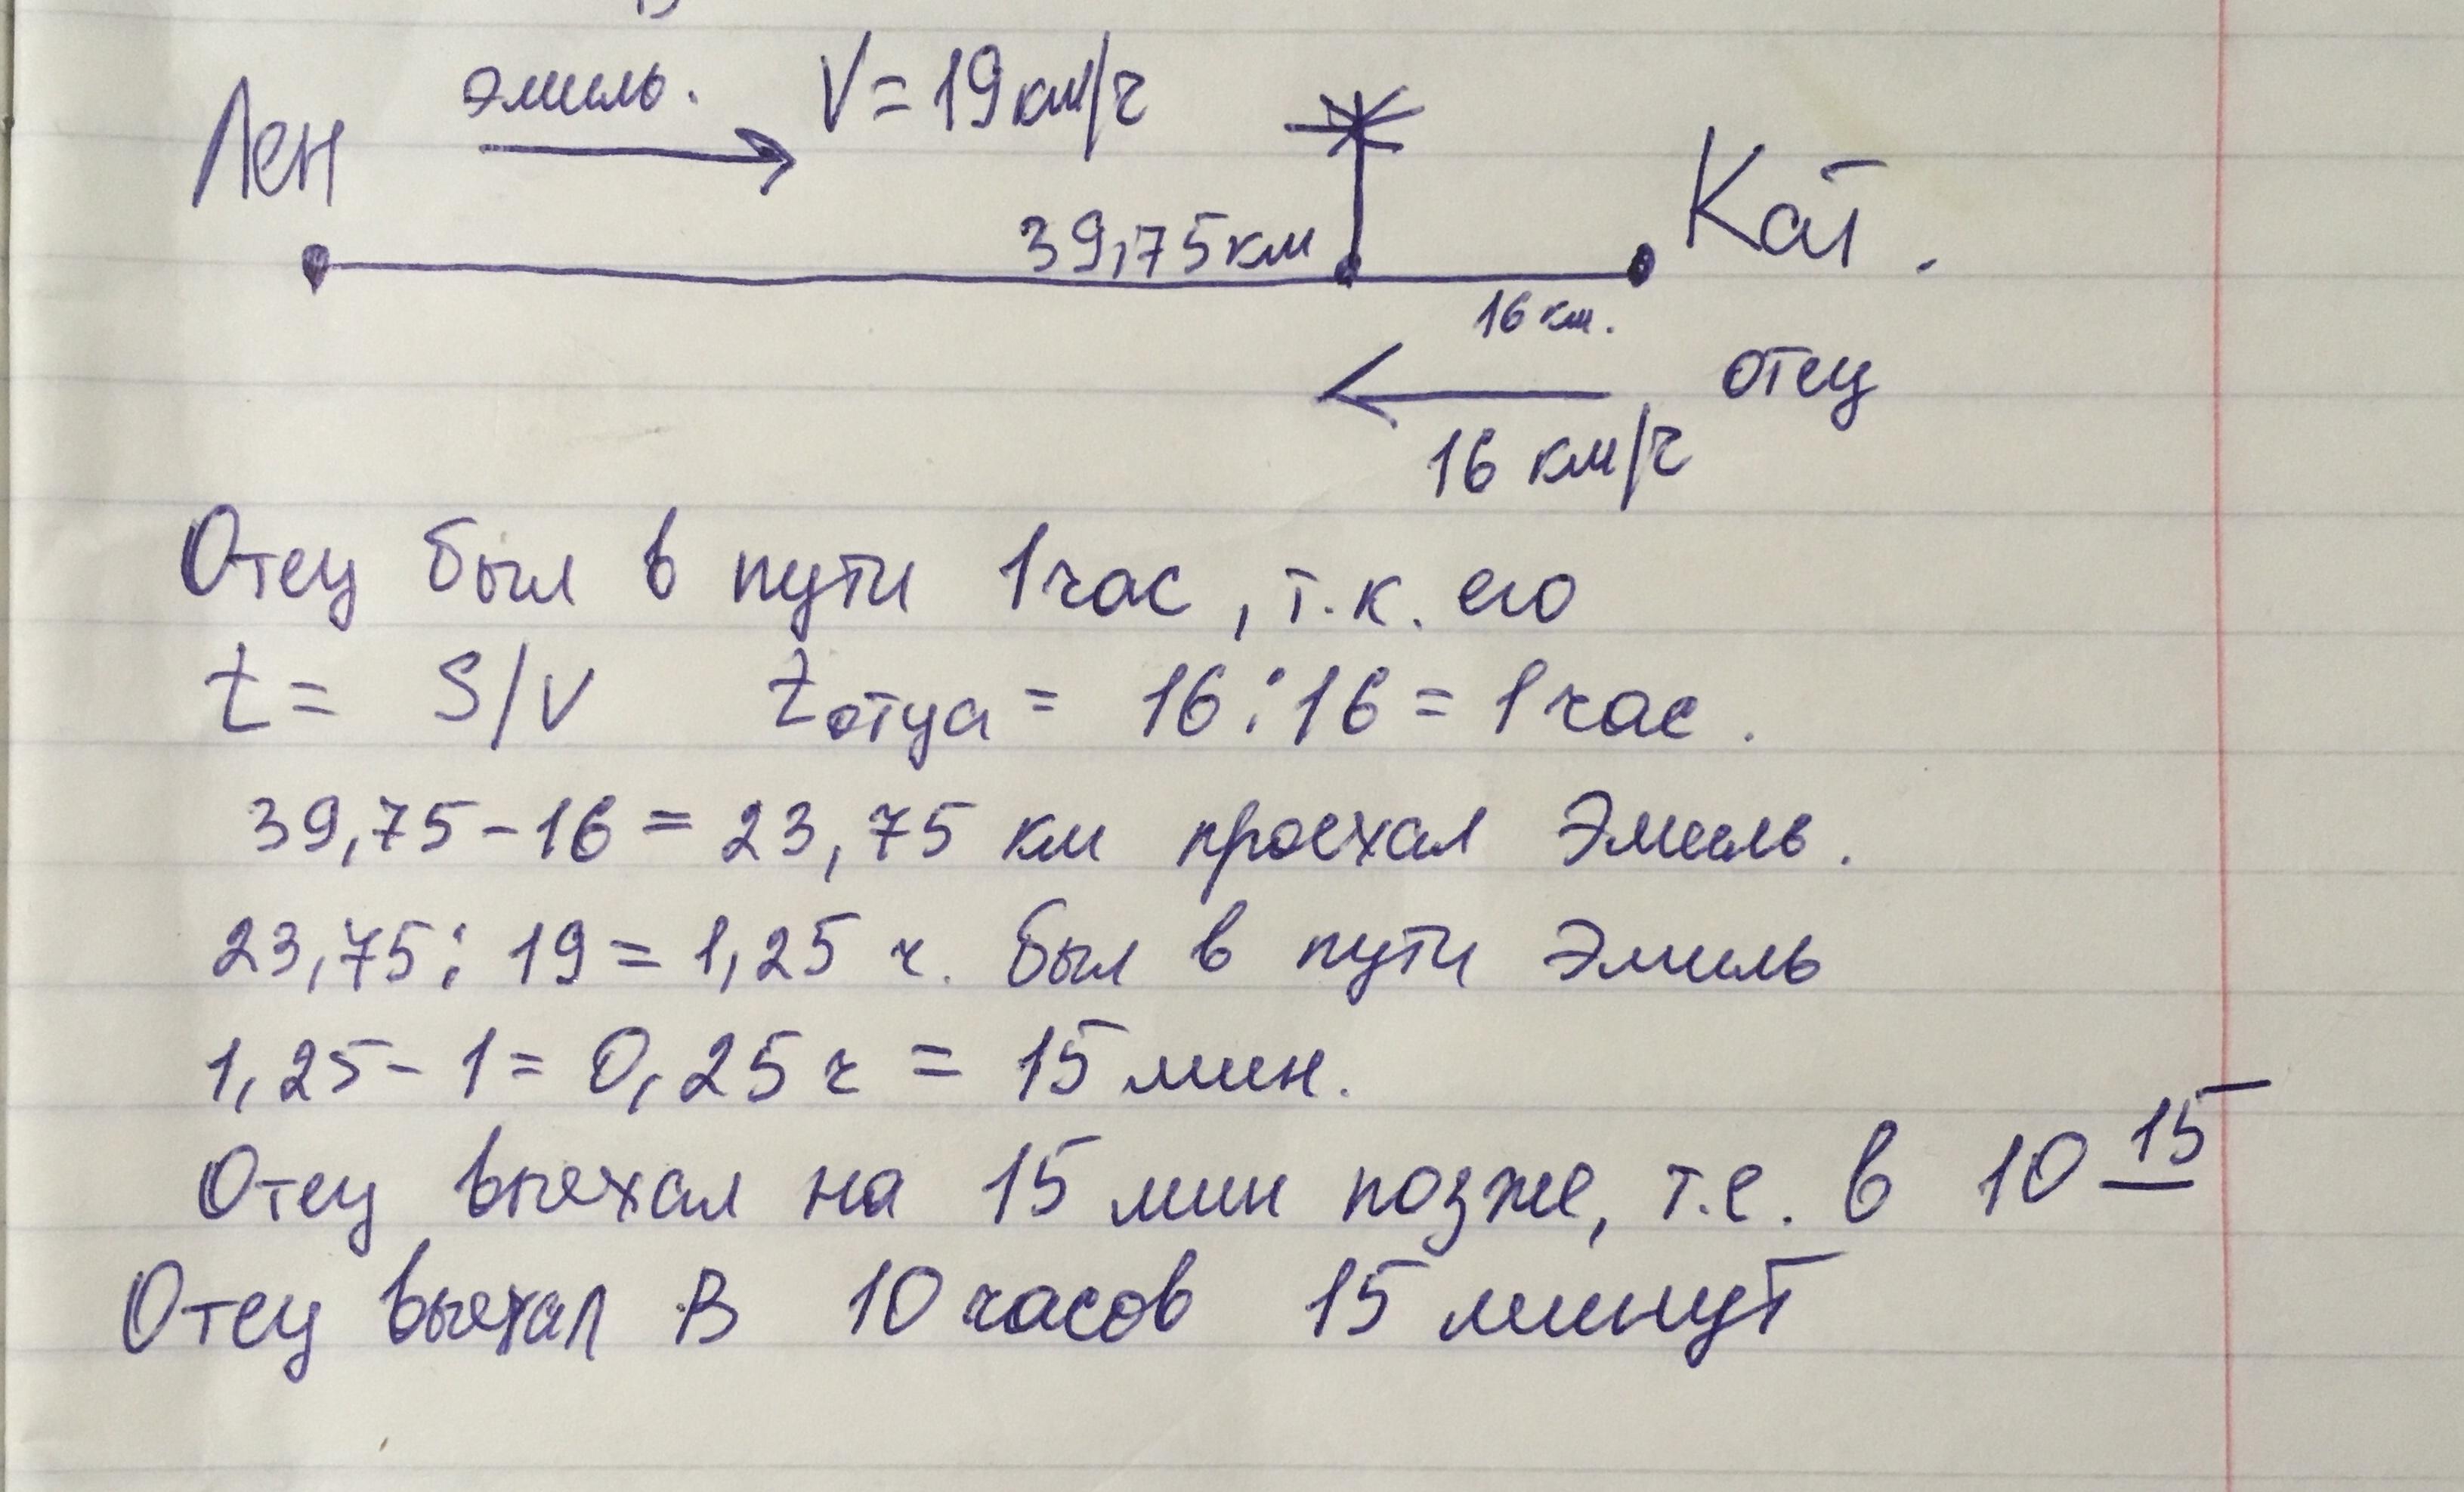 Эмиль. V=19км/ч
Лен
Кат.
39,75км
16 км.
отец
16 км/ч
Отец был в пути 1час, т.к. его
t= S/V tотца = 16:16=1час.
39,75-16=23,75 км проехал Эмиль.
23,75:19=1,25 ч. был в пути Эмиль
1,25-1=0,25ч = 15мин.
Отец выехал на 15 мин позже, т.е. в 10 15
Отец выехал в 10часов 15 минут